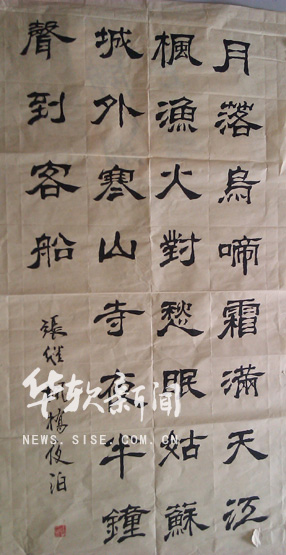 月落烏啼霜滿天江
楓漁火對愁眠姑蘇
城外寒山寺夜半鐘
聲到客船
張继楓橋夜泊
华软新闻
NEWS.SISE.COM.CN